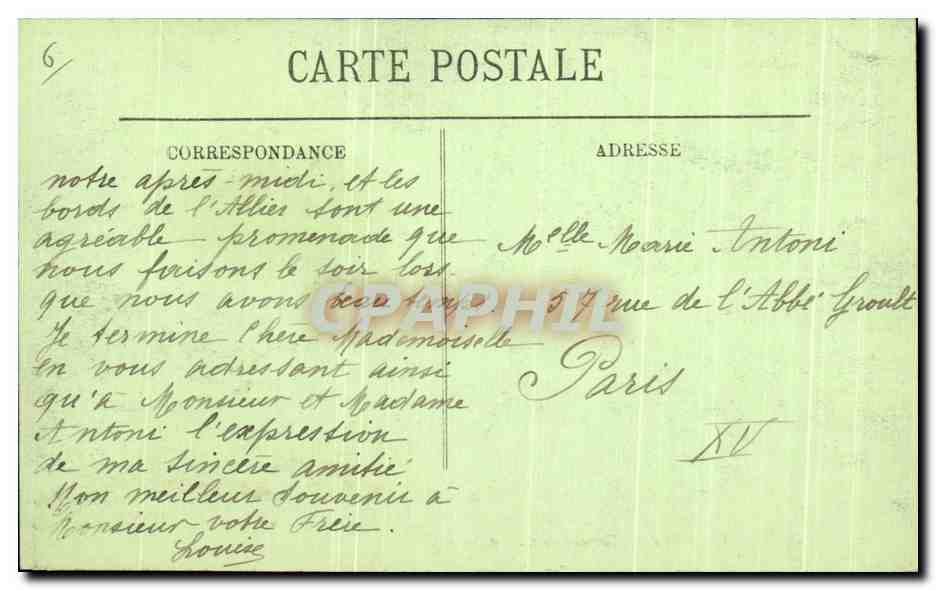 6/
CARTE POSTALE
CORRESPONDANCE
notre après-midi, et les
bords de l'Allier sont une
agréable promenade que
nous faisons le soir lors-
que nous avons beau temps.
Je termine Chère Mademoiselle
en vous adressant ainsi
qu'à Monsieur et Madame
Antoni l'expression
de ma sincère amitié
Mon meilleur souvenir à
Monsieur votre Frère.
Louise
ADRESSE
Melle Marie Antoni
57 rue de l'Abbé Groult
Paris
XV
CPAPHIL